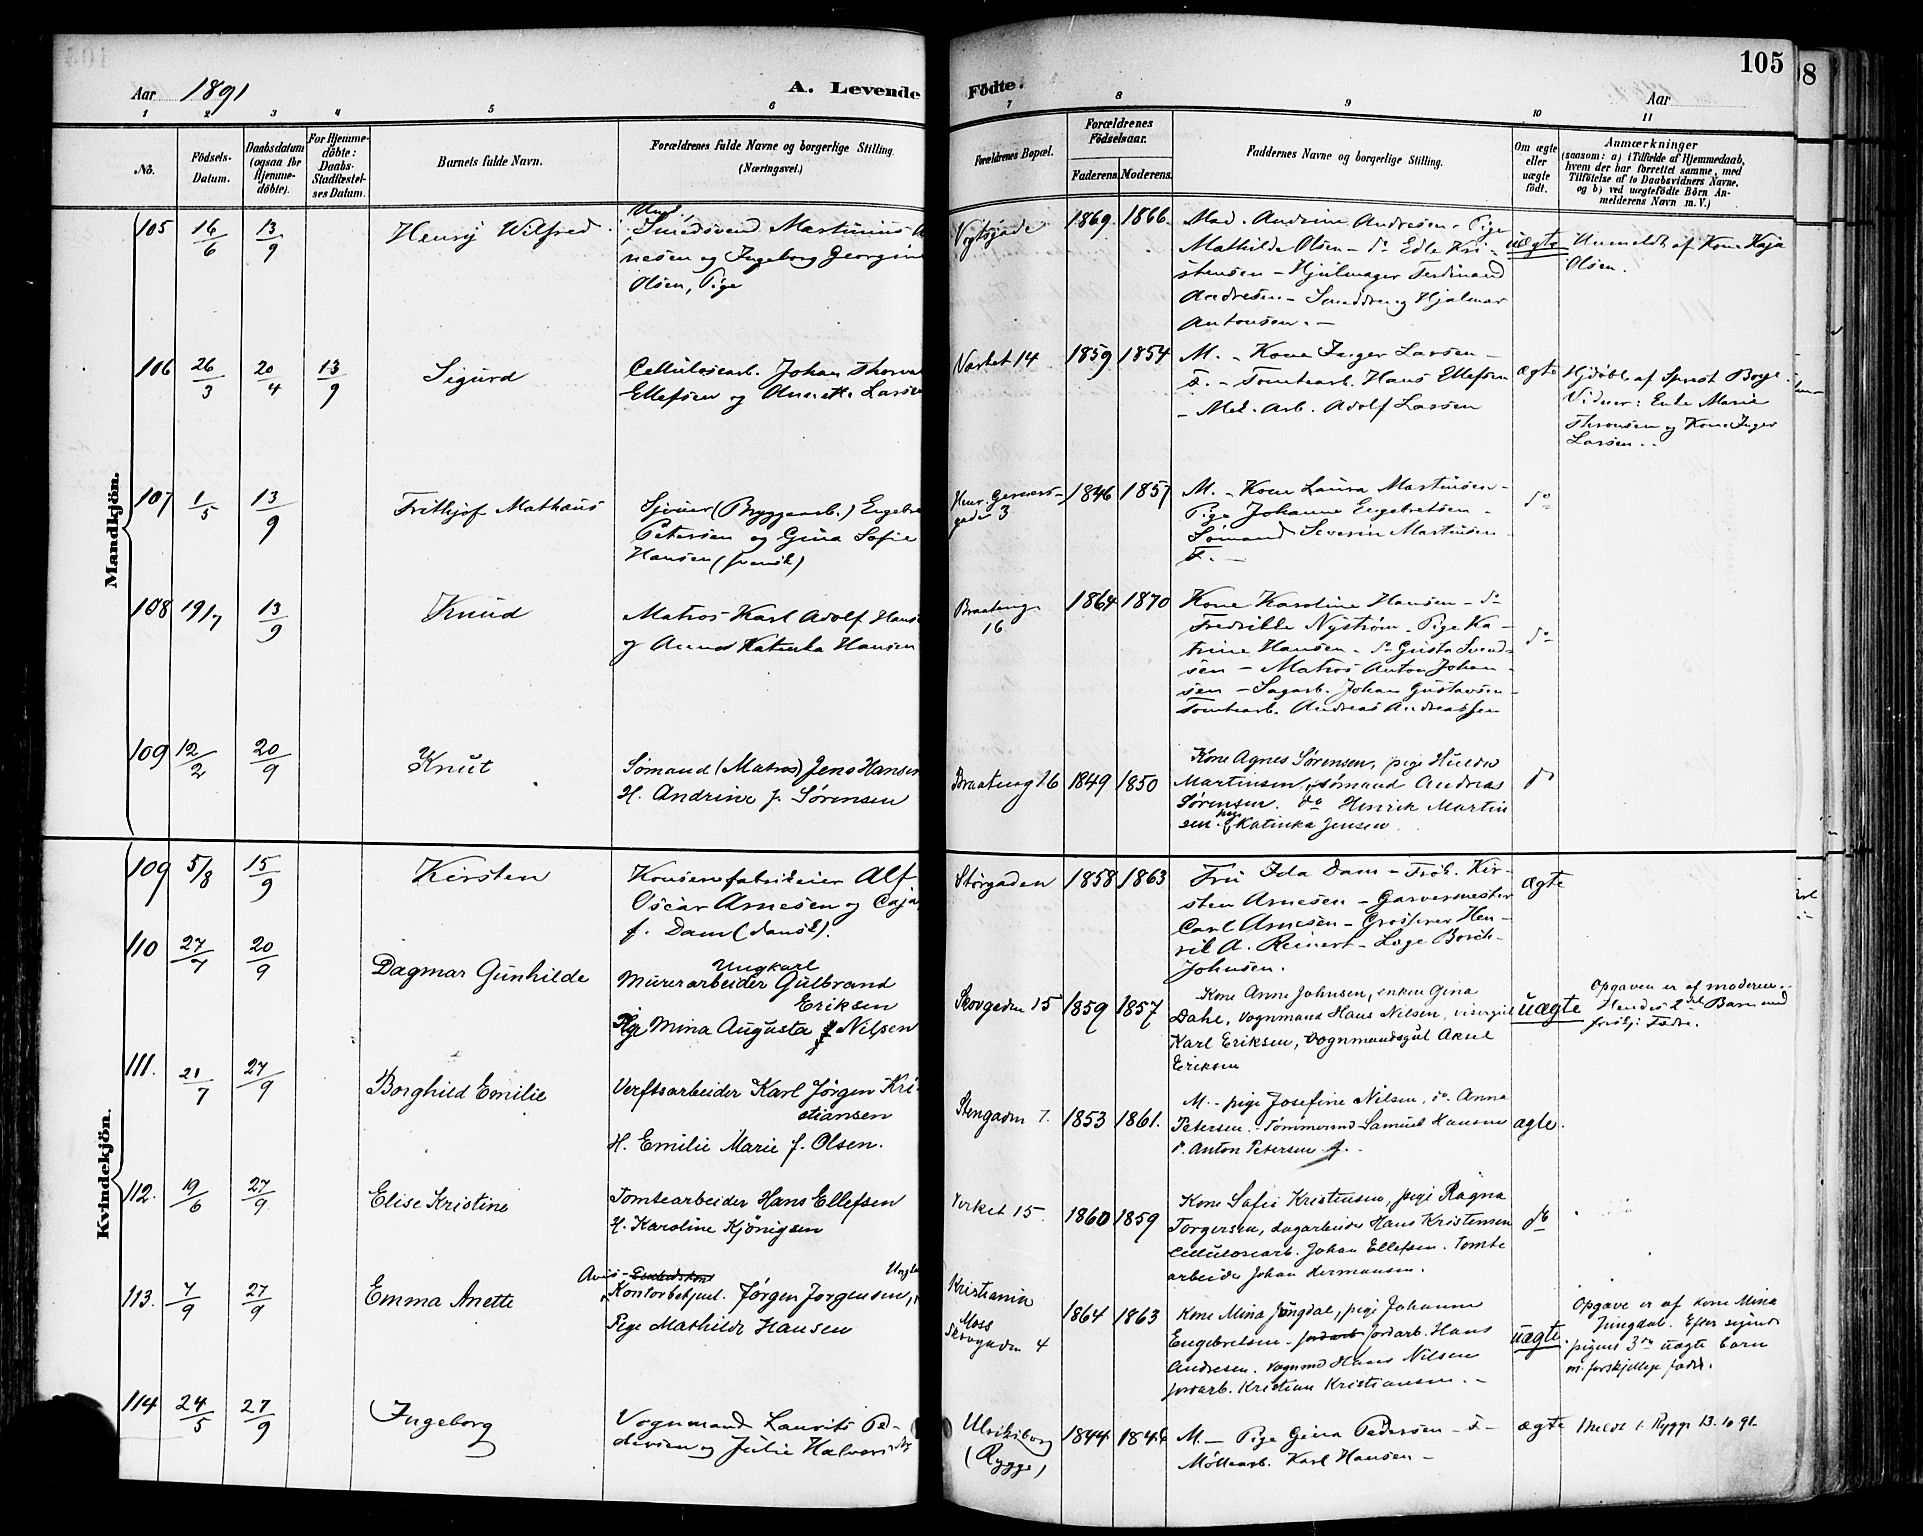 105
Aar 1891
A. Levende Födte.
Aar
1 2 3 4 5 6 7 8 9 10 11
No.
Födsels-Datum.
Daabsdatum (ogsaa for Hjemmedöbte).
For Hjemmedöbte: Daabs-Stadfæstelses Datum.
Barnets fulde Navn.
Forældrenes fulde Navne og borgerlige Stilling.
(Næringsvei.)
Forældrenes Bopæl.
Forældrenes Födselsaar.
Faderens. Moderens.
Faddernes Navne og borgerlige Stilling.
Om ægte eller uægte födt.
Anmærkninger
(saasom: a) i Tilfælde af Hjemmedaab, hvem der har forrettet samme, med Tilföielse af to Daabsvidners Navne, og b) ved uægtefödte Börn Anmelderens Navn m. V.)
Mandkjön.
105 16/6 13/9 Henry Wilfred. Ung. Smedsvend Martinius
nesen og Ingeborg Georgine
Olsen, Pige
Vogtsgade 1869. 1866.
Mad. Andrine Andresen - Pige
Mathilde Olsen - do Edle Kri-
stensen - Hjulmager Ferdinand
Andresen - Smeddreng Hjalmar
Antonsen. -
uægte
Anmeldt af Kone Kaja
Olsen.
106 26/3 20/4 13/9 Sigurd
Cellulosearb. Johan Thorva
Ellefsen og Annette Larsen
Værket 14 1859 1854
M. - Kone Inger Larsen -
F. - Tomtearb. Hans Ellefsen
- Mek. Arb. Adolf Larsen
ægte
Hjdöbt af Sprest Borge.
Vidner: Enke Marie
Thronsen og Kone Inger
Larsen..
107 1/5 13/9 Frithjof Mathæus
Sjouer (Bryggearb.) Engebre
Petersen og Gina Sofie
Hansen (svensk)
Henr. Gerners-
gade 3 1846 1857
M. - Kone Laura Martinsen -
Pige Johanne Engebretsen -
Sömand Severin Martinsen
F. -
do
108 19/7 13/9 Knud
Matros Karl Adolf Hans
og Anna Katinka Hansen
Braateng.
16 1864 1870
Kone Karoline Hansen - do
Fredrikke Nyström - Pige Ka-
trine Hansen - do Gusta Svend-
sen - Matros Anton Johan-
sen - Sagarb. Johan Gustavsen -
Tomtearb. Andreas Andreassen
do
109 12/2 20/9 Knut
Sømand (Matros) Jens Hansen
H. Andrine f. Sørensen
Braateng 16 1849 1850
Kone Agnes Sørensen, pige Hulda
Martinsen, sømand Andreas
Sørensen. do Henrik Martin
sen. pige Katinka Jensen
do
Kvindekjön.
109 5/8 15/9 Kirsten
Konservefabrikeier Alf
Oscar Arnesen og Caja
f. Dam (dansk).
Storgaden 1858 1863
Fru Ida Dam - Frøk. Kir-
sten Arnesen - Garvermester
Carl Arnesen - Grosserer Hen-
rik A. Reinert - Læge Borch-
Johnsen.
ægte
110 27/7 20/9 Dagmar Gunhilde
Ungkarl
Murerarbeider Gulbrand
Eriksen
Pige Mina Augusta Nilsen
Skovgaden 15 1859 1857
Kone Anne Johnsen, enken Gina
Dahl, vognmand Hans Nilsen, visergut
Karl Eriksen, vognmandsgut Aksel
Eriksen
uægte
Opgaven er af moderen.
Hendes 2det Barn med
forskj. Fædre.
111. 21/7 27/9 Borghild Emilie
Verftsarbeider Karl Jørgen Kri-
stiansen
H. Emilie Marie f. Olsen.
Stengaden 7. 1853 1861.
M. - pige Josefine Nilsen, do. Anna
Petersen. - Tømmermd Samuel Hansen
do. Anton Petersen. f.
ægte.
112. 19/6 27/9 Elise Kristine
Tomtearbeider Hans Ellefsen
H. Karoline Kjønigsen
Verket 15. 1860 1859
Kone Sofie Kristensen, pige Ragna
Torgersen, dagarbeider Hans Kristensen
Cellulosearb. Johan Ellefsen. Tomte
arbeider Johan Hermansen.
do
113. 7/9 27/9 Emma Anette
Avis-
Kontorbetjent. Jørgen Jorgensen,
Pige Mathilde Hansen
Kristiania
Moss
Skovgaden 4 1864 1863
Kone Mina Jungdal, pige Johanne
Engebretsen - Jordarb. Hans
Andresen. Vognmd Hans Nilsen
Jordarb. Kristian Kristiansen. -
uægte
Opgave er af kone Mina
Jungdal. Efter sigende
pigens 3die uægte barn
m. forskjellige fædre.
114 24/5 27/9 Ingeborg
Vognmand Laurits Pe-
dersen og Julie Halvors
Ulriksborg
(Rygge) 1844 1846
M. - Pige Gina Pedersen - F -
Mölleearb. Karl Hansen -
ægte
Meldt t. Rygge 13.10.91.